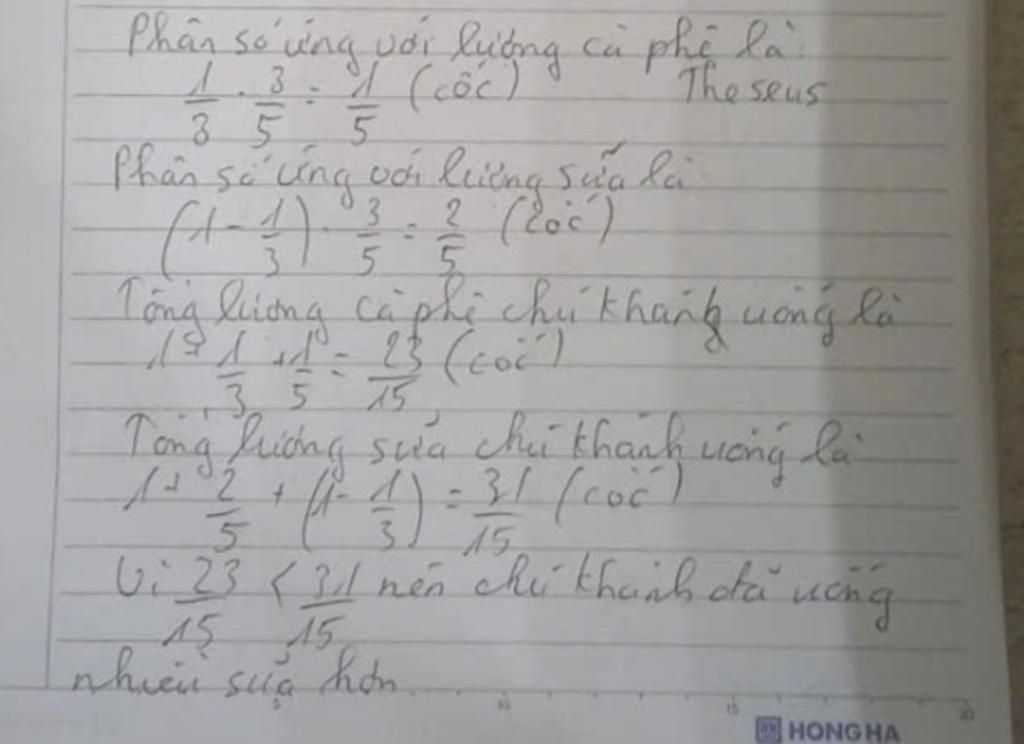 Phân số ứng với lượng cà phê là:
1/3 . 3/5 = 1/5 (cốc) Theseus
Phân số ứng với lượng sữa là
(1 - 1/3) . 3/5 = 2/5 (cốc)
Tổng lượng cà phê chú Khánh uống là
1 + 1/3 + 1/5 = 23/15 (cốc)
Tổng lượng sữa chú Khánh uống là
1 + 2/5 + (1 - 1/3) = 31/15 (cốc)
Vì 23/15 < 31/15 nên chú Khánh đã uống
nhiều sữa hơn.
5 10 15 20
HH HONG HA